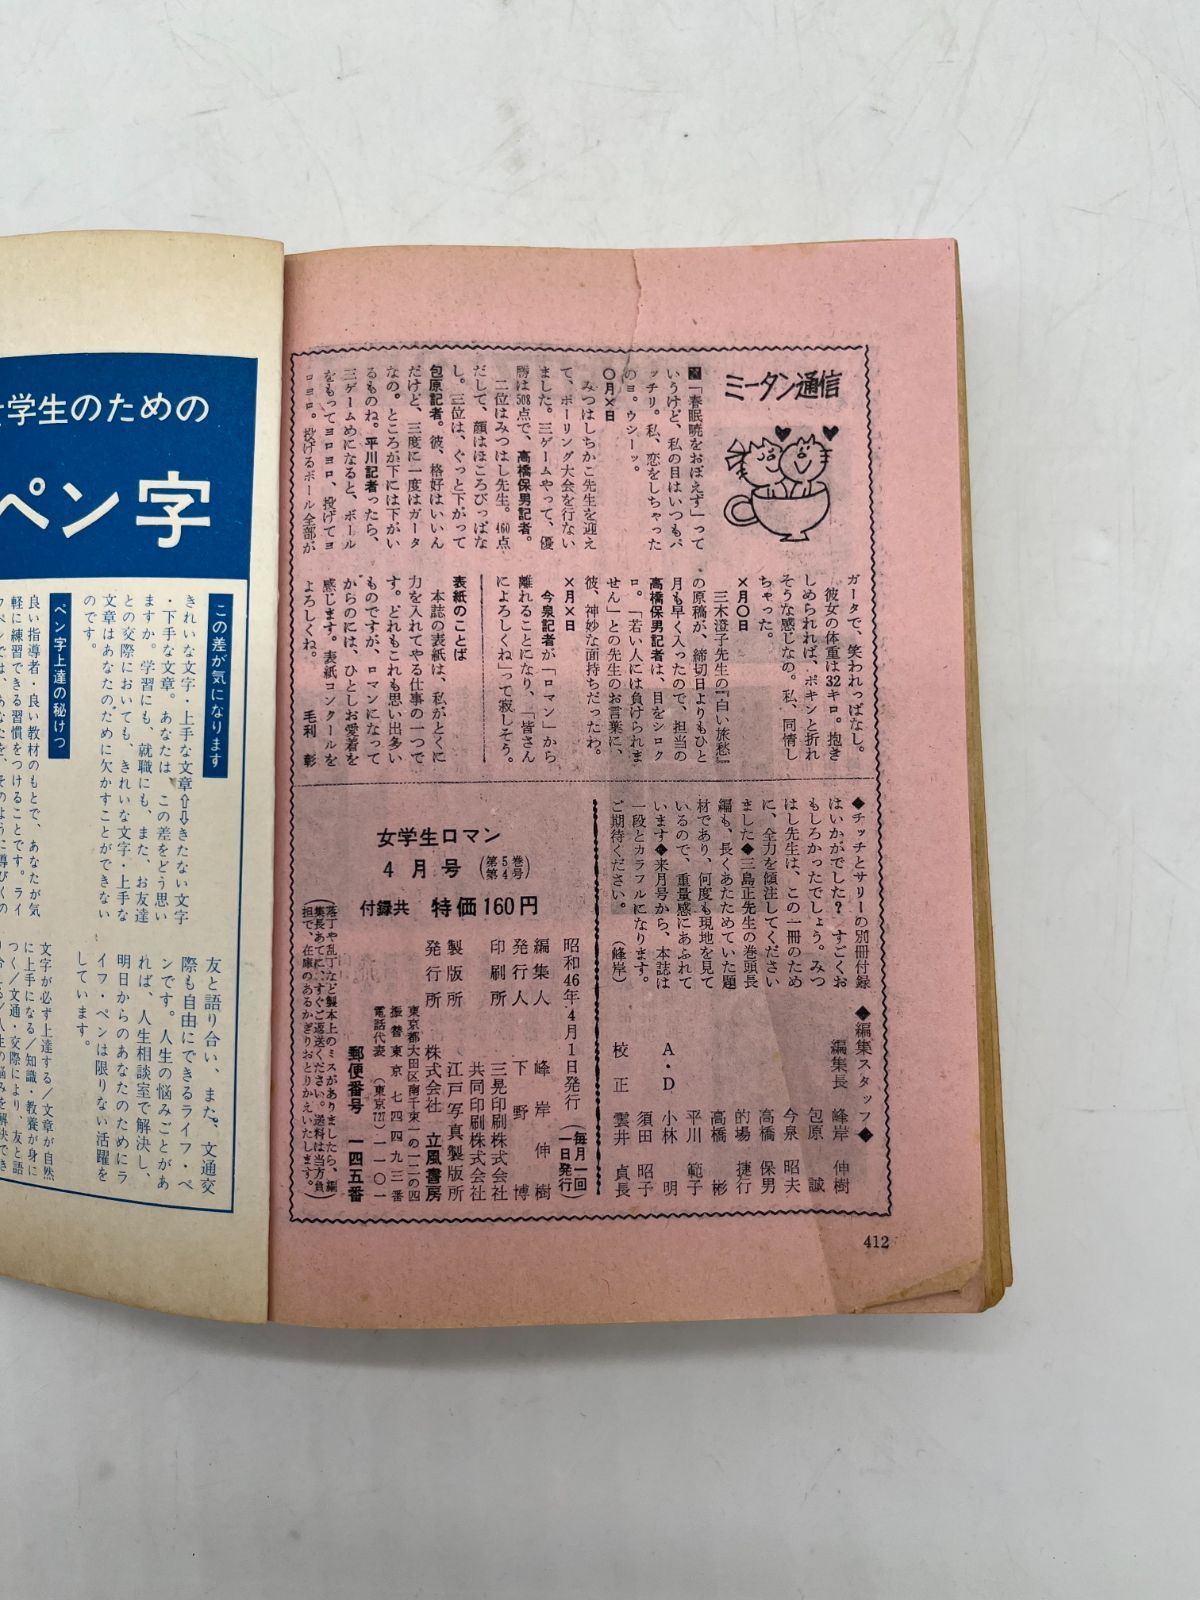 ミータン通信
■「春眠暁をおぼえず」って
いうけど、私の目はいつもパ
ッチリ。私、恋をしちゃった
のヨ。ウシーッ。
〇月×日
みつはしちかこ先生を迎え
て、ボーリング大会を行ない
ました。三ゲームやって、優
勝は508点で、高橋保男記者。
二位はみつはし先生。460点
だして、顔はほころびっぱな
し。三位は、ぐっと下がって
包原記者。彼、格好はいいん
だけど、三度に一度はガータ
なの。ところが下には下がい
るものね。平川記者ったら、
三ゲームめになると、ボール
をもってヨロヨロ、投げてヨ
ロヨロ。投げるボール全部が
ガータで、笑われっぱなし。
彼女の体重は32キロ。抱き
しめられれば、ポキンと折れ
そうな感じなの。私、同情し
ちゃった。
×月〇日
三木澄子先生の『白い旅愁』
の原稿が、締切日よりもひと
月も早く入ったので、担当の
高橋保男記者は、目をシロク
ロ。「若い人には負けられま
せん」との先生のお言葉に、
彼、神妙な面持ちだったわ。
×月×日
今泉記者が「ロマン」から
離れることになり、「皆さん
によろしくね」って寂しそう。
表紙のことば
本誌の表紙は、私がとくに
力を入れてやる仕事の一つで
す。どれもこれも思い出多い
ものですが、ロマンになって
からのには、ひとしお愛着を
感じます。表紙コンクールを
よろしくね。 毛利 彰
◆チッチとサリーの別冊付録
はいかがでした？ すごくお
もしろかったでしょう。みつ
はし先生は、この一冊のため
に、全力を傾注してください
ました◆三島正先生の巻頭長
編も、長くあたためていた題
材であり、何度も現地を見て
いるので、重量感にあふれて
います◆来月号から、本誌は
一段とカラフルになります。
ご期待ください。 （峰岸）
◆編集スタッフ◆
編集長 峰岸 伸樹
包原 誠
今泉 昭夫
高橋 保男
的場 捷行
高橋 彬
平川 範子
A・D 小林 明
須田 昭子
校正 雲井 貞長
女学生ロマン
4月号（第5巻第4号）
付録共 特価160円
昭和46年4月1日発行（毎月一回一日発行）
編集人 峰岸伸樹
発行人 下野博
印刷所 三晃印刷株式会社
共同印刷株式会社
製版所 江戸写真製版所
発行所 株式会社 立風書房
東京都大田区南千束一の一二の四
振替東京 七四四九三番
電話代表（東京727）一一〇一
郵便番号 一四五番
（落丁や乱丁など製本上のミスがありましたら、編
集長あてに、すぐご返送ください。送料は当方負
担で、在庫のあるかぎりおとりかえいたします。）
412
学生のための
ペン字
この差が気になります
きれいな文字・上手な文章⇧⇩きたない文字
・下手な文章。あなたは、この差をどう思い
ますか。学習にも、就職にも、また、お友達
との交際においても、きれいな文字・上手な
文章はあなたのために欠かすことができない
のです。
ペン字上達の秘けつ
良い指導者・良い教材のもとで、あなたが気
軽に練習できる習慣をつけることです。ライ
友と語り合い、また、文通交
際も自由にできるライフ・ペ
ンです。人生の悩みごとがあ
れば、人生相談室で解決し、
明日からのあなたのためにラ
イフ・ペンは限りない活躍を
しています。
文字が必ず上達する／文章が自然
に上手になる／知識・教養が身に
つく／文通・交際により、友と語